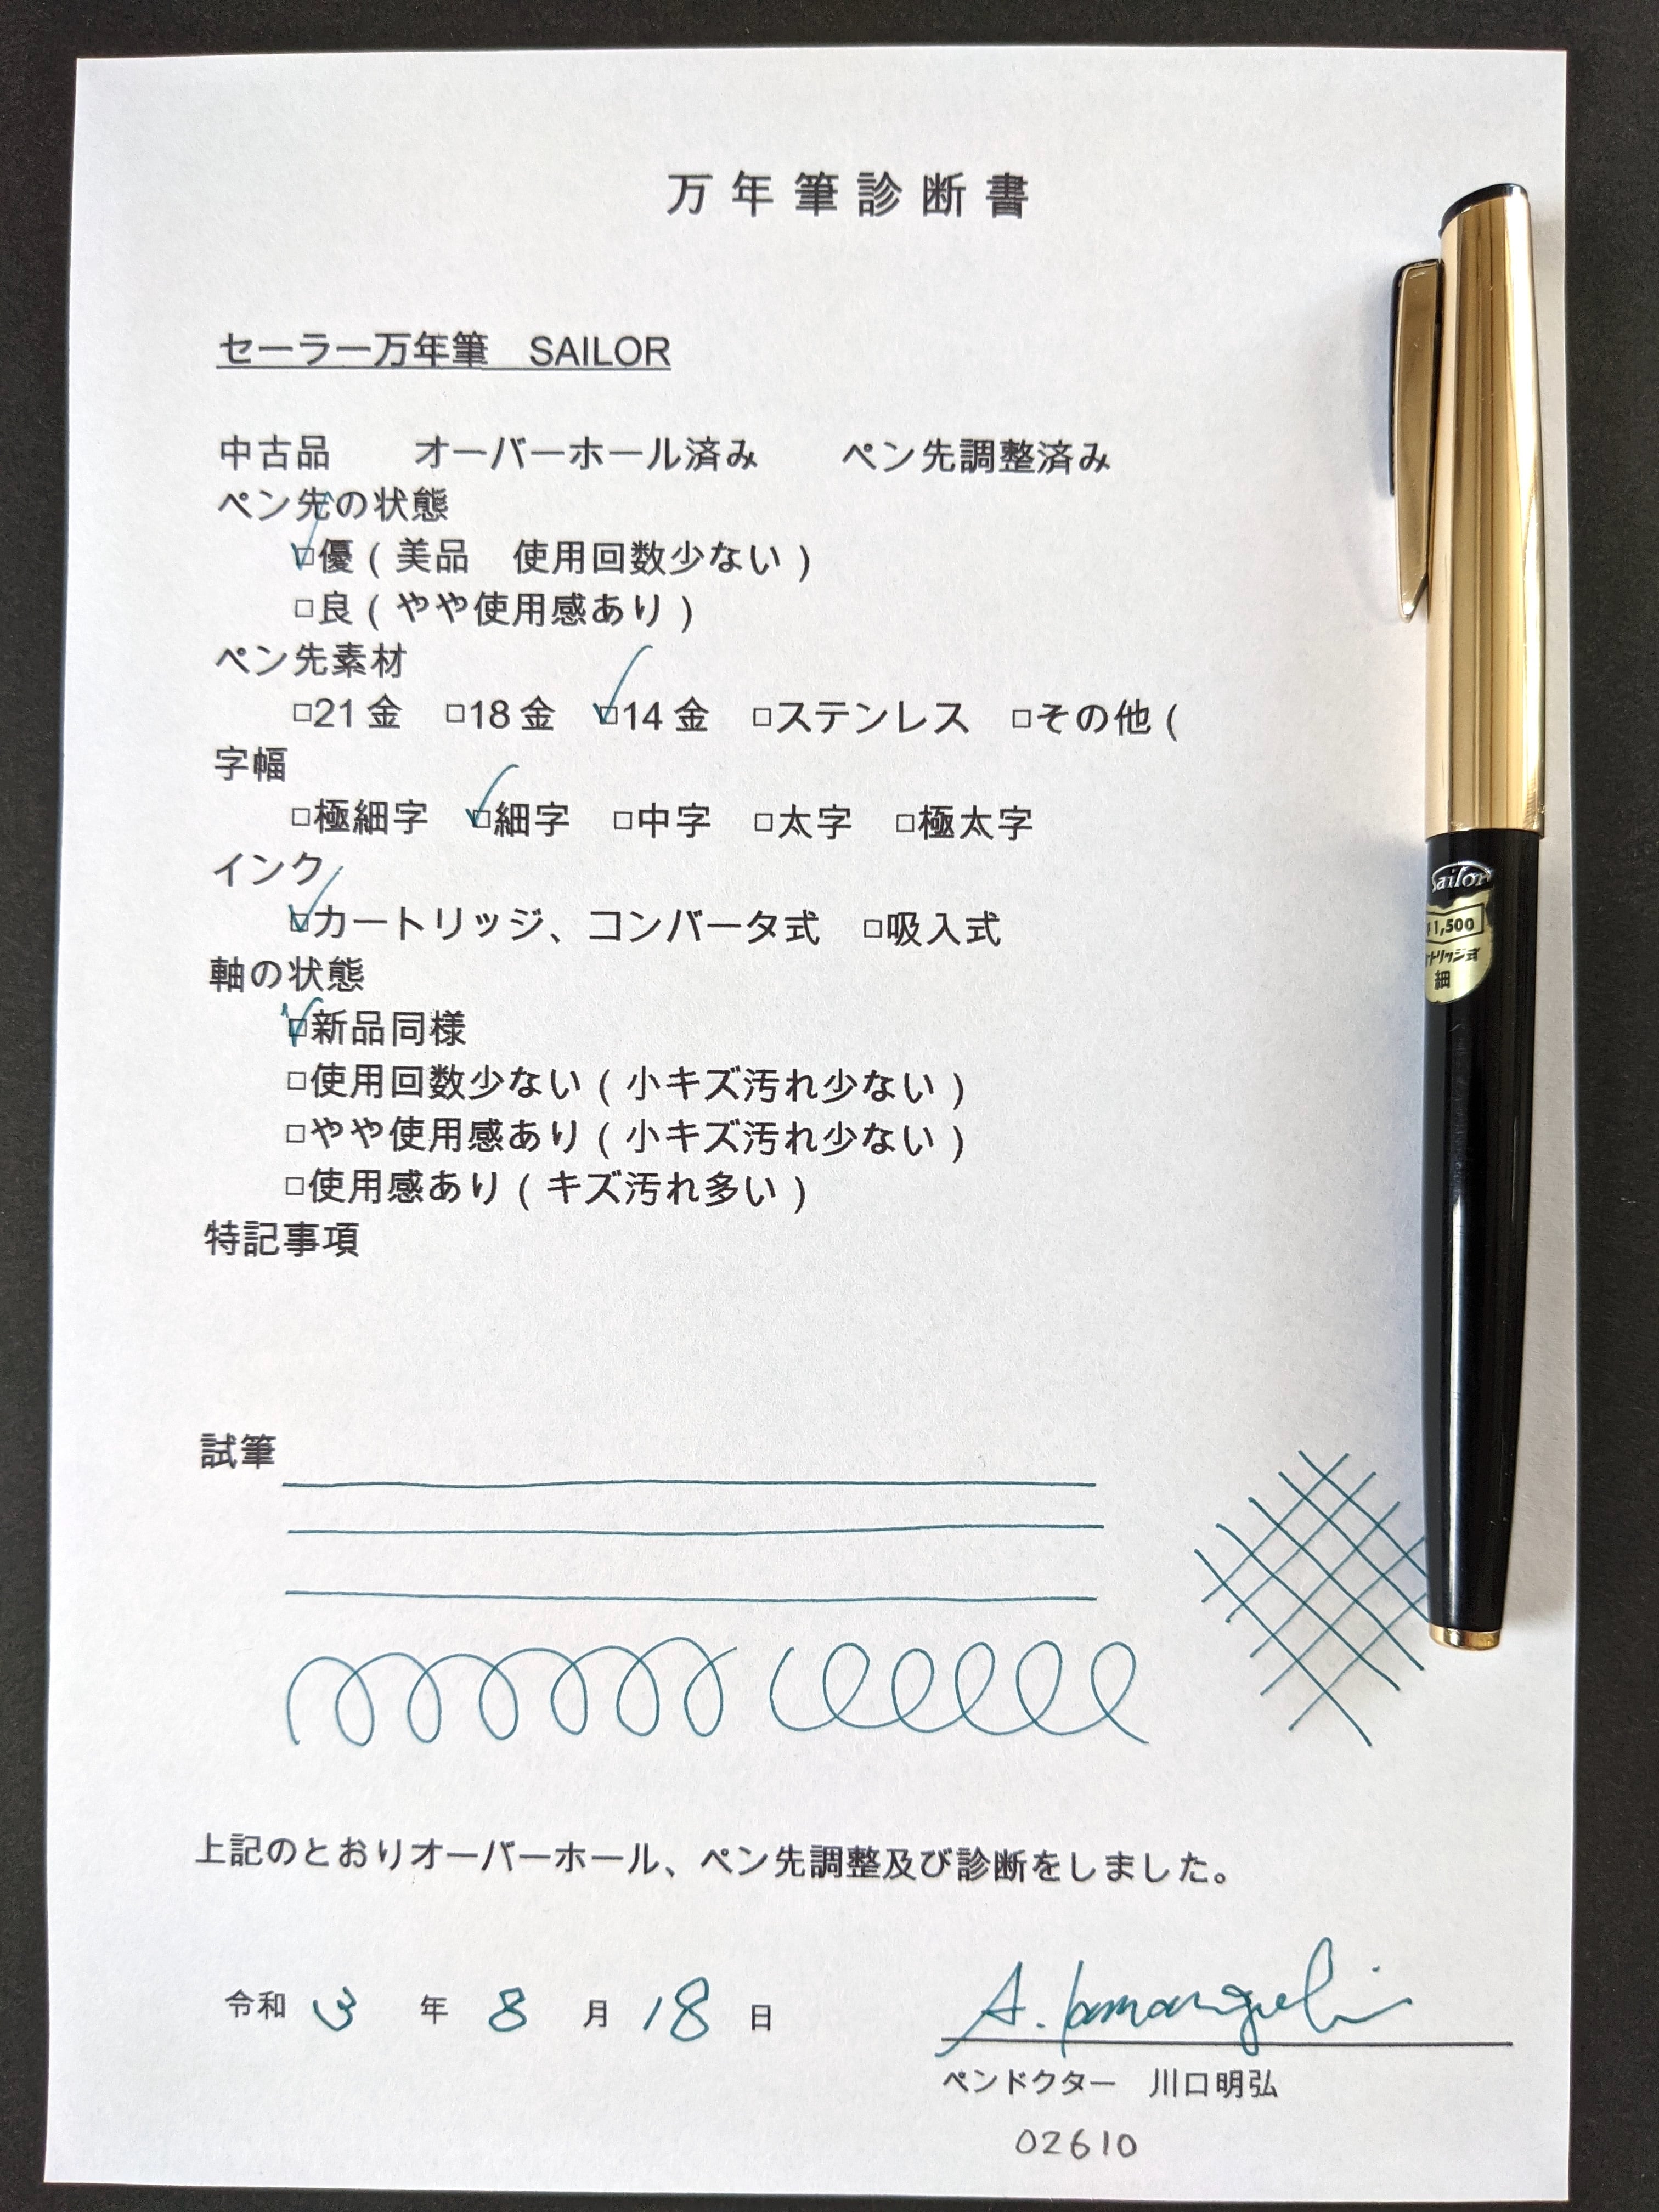 万年筆診断書
セーラー万年筆　SAILOR
中古品　　オーバーホール済み　　ペン先調整済み
ペン先の状態
☑優（美品　使用回数少ない）
□良（やや使用感あり）
ペン先素材
□21金　□18金　☑14金　□ステンレス　□その他（
字幅
□極細字　☑細字　□中字　□太字　□極太字
インク
☑カートリッジ、コンバータ式　□吸入式
軸の状態
☑新品同様
□使用回数少ない（小キズ汚れ少ない）
□やや使用感あり（小キズ汚れ少ない）
□使用感あり（キズ汚れ多い）
特記事項
試筆
上記のとおりオーバーホール、ペン先調整及び診断をしました。
令和 3 年 8 月 18 日
ペンドクター　川口明弘
02610
Sailor
¥1,500
トリッジ式
細